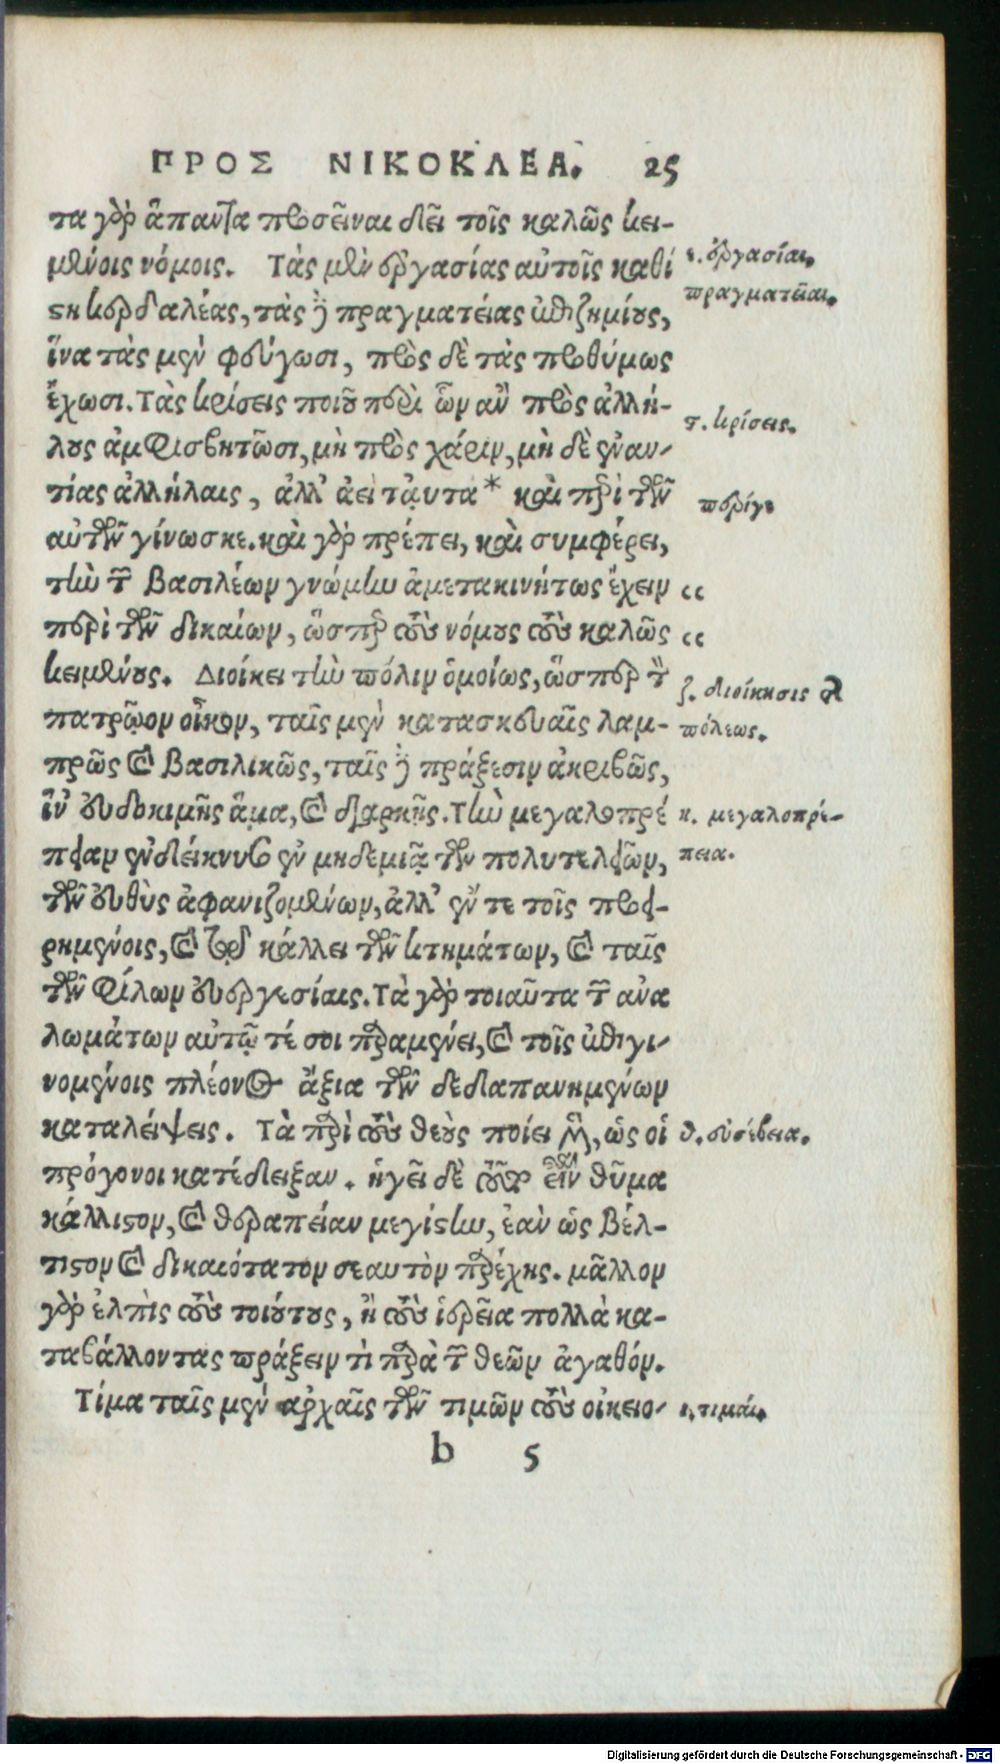 ΠΡΟΣ ΝΙΚΟΚΛΕΑ. 25
τα γὰρ ἅπαντα προσεῖναι δεῖ τοῖς καλῶς κει-
μένοις νόμοις. Τὰς μὲν ἐργασίας αὐτοῖς καθί
στη κερδαλέας, τὰς δὲ πραγματείας ἐπιζημίους,
ἵνα τὰς μὲν φεύγωσι, πρὸς δὲ τὰς προθύμως
ἔχωσι. Τὰς κρίσεις ποιοῦ περὶ ὧν ἂν πρὸς ἀλλή-
λους ἀμφισβητῶσι, μὴ πρὸς χάριν, μὴ δὲ ἐναν-
τίας ἀλλήλαις, ἀλλ' ἀεὶ ταὐτα * καὶ περὶ τῶν
αὐτῶν γίνωσκε. καὶ γὰρ πρέπει, καὶ συμφέρει,
τὴν τῶν βασιλέων γνώμην ἀμετακινήτως ἔχειν
περὶ τῶν δικαίων, ὥσπερ τοὺς νόμους τοὺς καλῶς
κειμένους. Διοίκει τὴν πόλιν ὁμοίως, ὥσπερ τὸν
πατρῷον οἶκον, ταῖς μὲν κατασκευαῖς λαμ-
πρῶς καὶ βασιλικῶς, ταῖς δὲ πράξεσιν ἀκριβῶς,
ἵν' εὐδοκιμῇς ἅμα, καὶ διαρκῇς. Τὴν μεγαλοπρέ
πειαν ἐνδείκνυσο ἐν μηδεμιᾷ τῶν πολυτελειῶν,
τῶν εὐθὺς ἀφανιζομένων, ἀλλ' ἔν τε τοῖς προει-
ρημένοις, καὶ τῷ κάλλει τῶν κτημάτων, καὶ ταῖς
τῶν φίλων εὐεργεσίαις. Τὰ γὰρ τοιαῦτα τῶν ἀνα
λωμάτων αὐτῷ τέ σοι παραμένει, καὶ τοῖς ἐπιγι-
νομένοις πλέονος ἄξια τῶν δεδαπανημένων
καταλείψεις. Τὰ περὶ τοὺς θεοὺς ποίει μὲν, ὡς οἱ
πρόγονοι κατέδειξαν. ἡγεῖ δὲ τοῦτο εἶναι θῦμα
κάλλιστον, καὶ θεραπείαν μεγίστην, ἐὰν ὡς βέλ-
τιστον καὶ δικαιότατον σεαυτὸν παρέχῃς. μᾶλλον
γὰρ ἐλπὶς τοὺς τοιούτους, ἢ τοὺς ἱερεῖα πολλὰ κα-
ταβάλλοντας πράξειν τὶ παρὰ τῶν θεῶν ἀγαθόν.
Τίμα ταῖς μὲν ἀρχαῖς τῶν τιμῶν τοὺς οἰκειο-
b 5
ε. ἐργασίαι,
πραγματεῖαι.
ϛ. κρίσεις.
περί γε
ζ. διοίκησις τῆς
πόλεως.
η. μεγαλοπρέ-
πεια.
θ. εὐσέβεια.
ι. τιμαί.
Digitalisierung gefördert durch die Deutsche Forschungsgemeinschaft - DFG